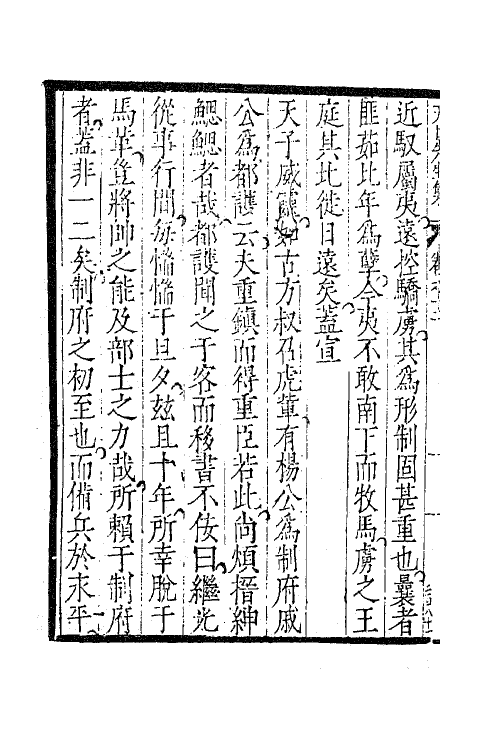 近馭屬夷遠控驕虜其為形制固甚重也曩者
匪茹比年為孽今夷不敢南下而牧馬虜之王
庭其比徙日遠矣蓋宣
天子威靈如古方叔召虎輩有楊公為制府戚
公為都護云夫重鎮而得重臣若此尚煩搢紳
鰓鰓者哉都護聞之于客而移書不佞曰繼光
從事行間每惴惴于旦夕玆且十年所幸脫于
馬革豈將帥之能及部士之力哉所賴于制府
者蓋非一二矣制府之初至也而備兵於永平